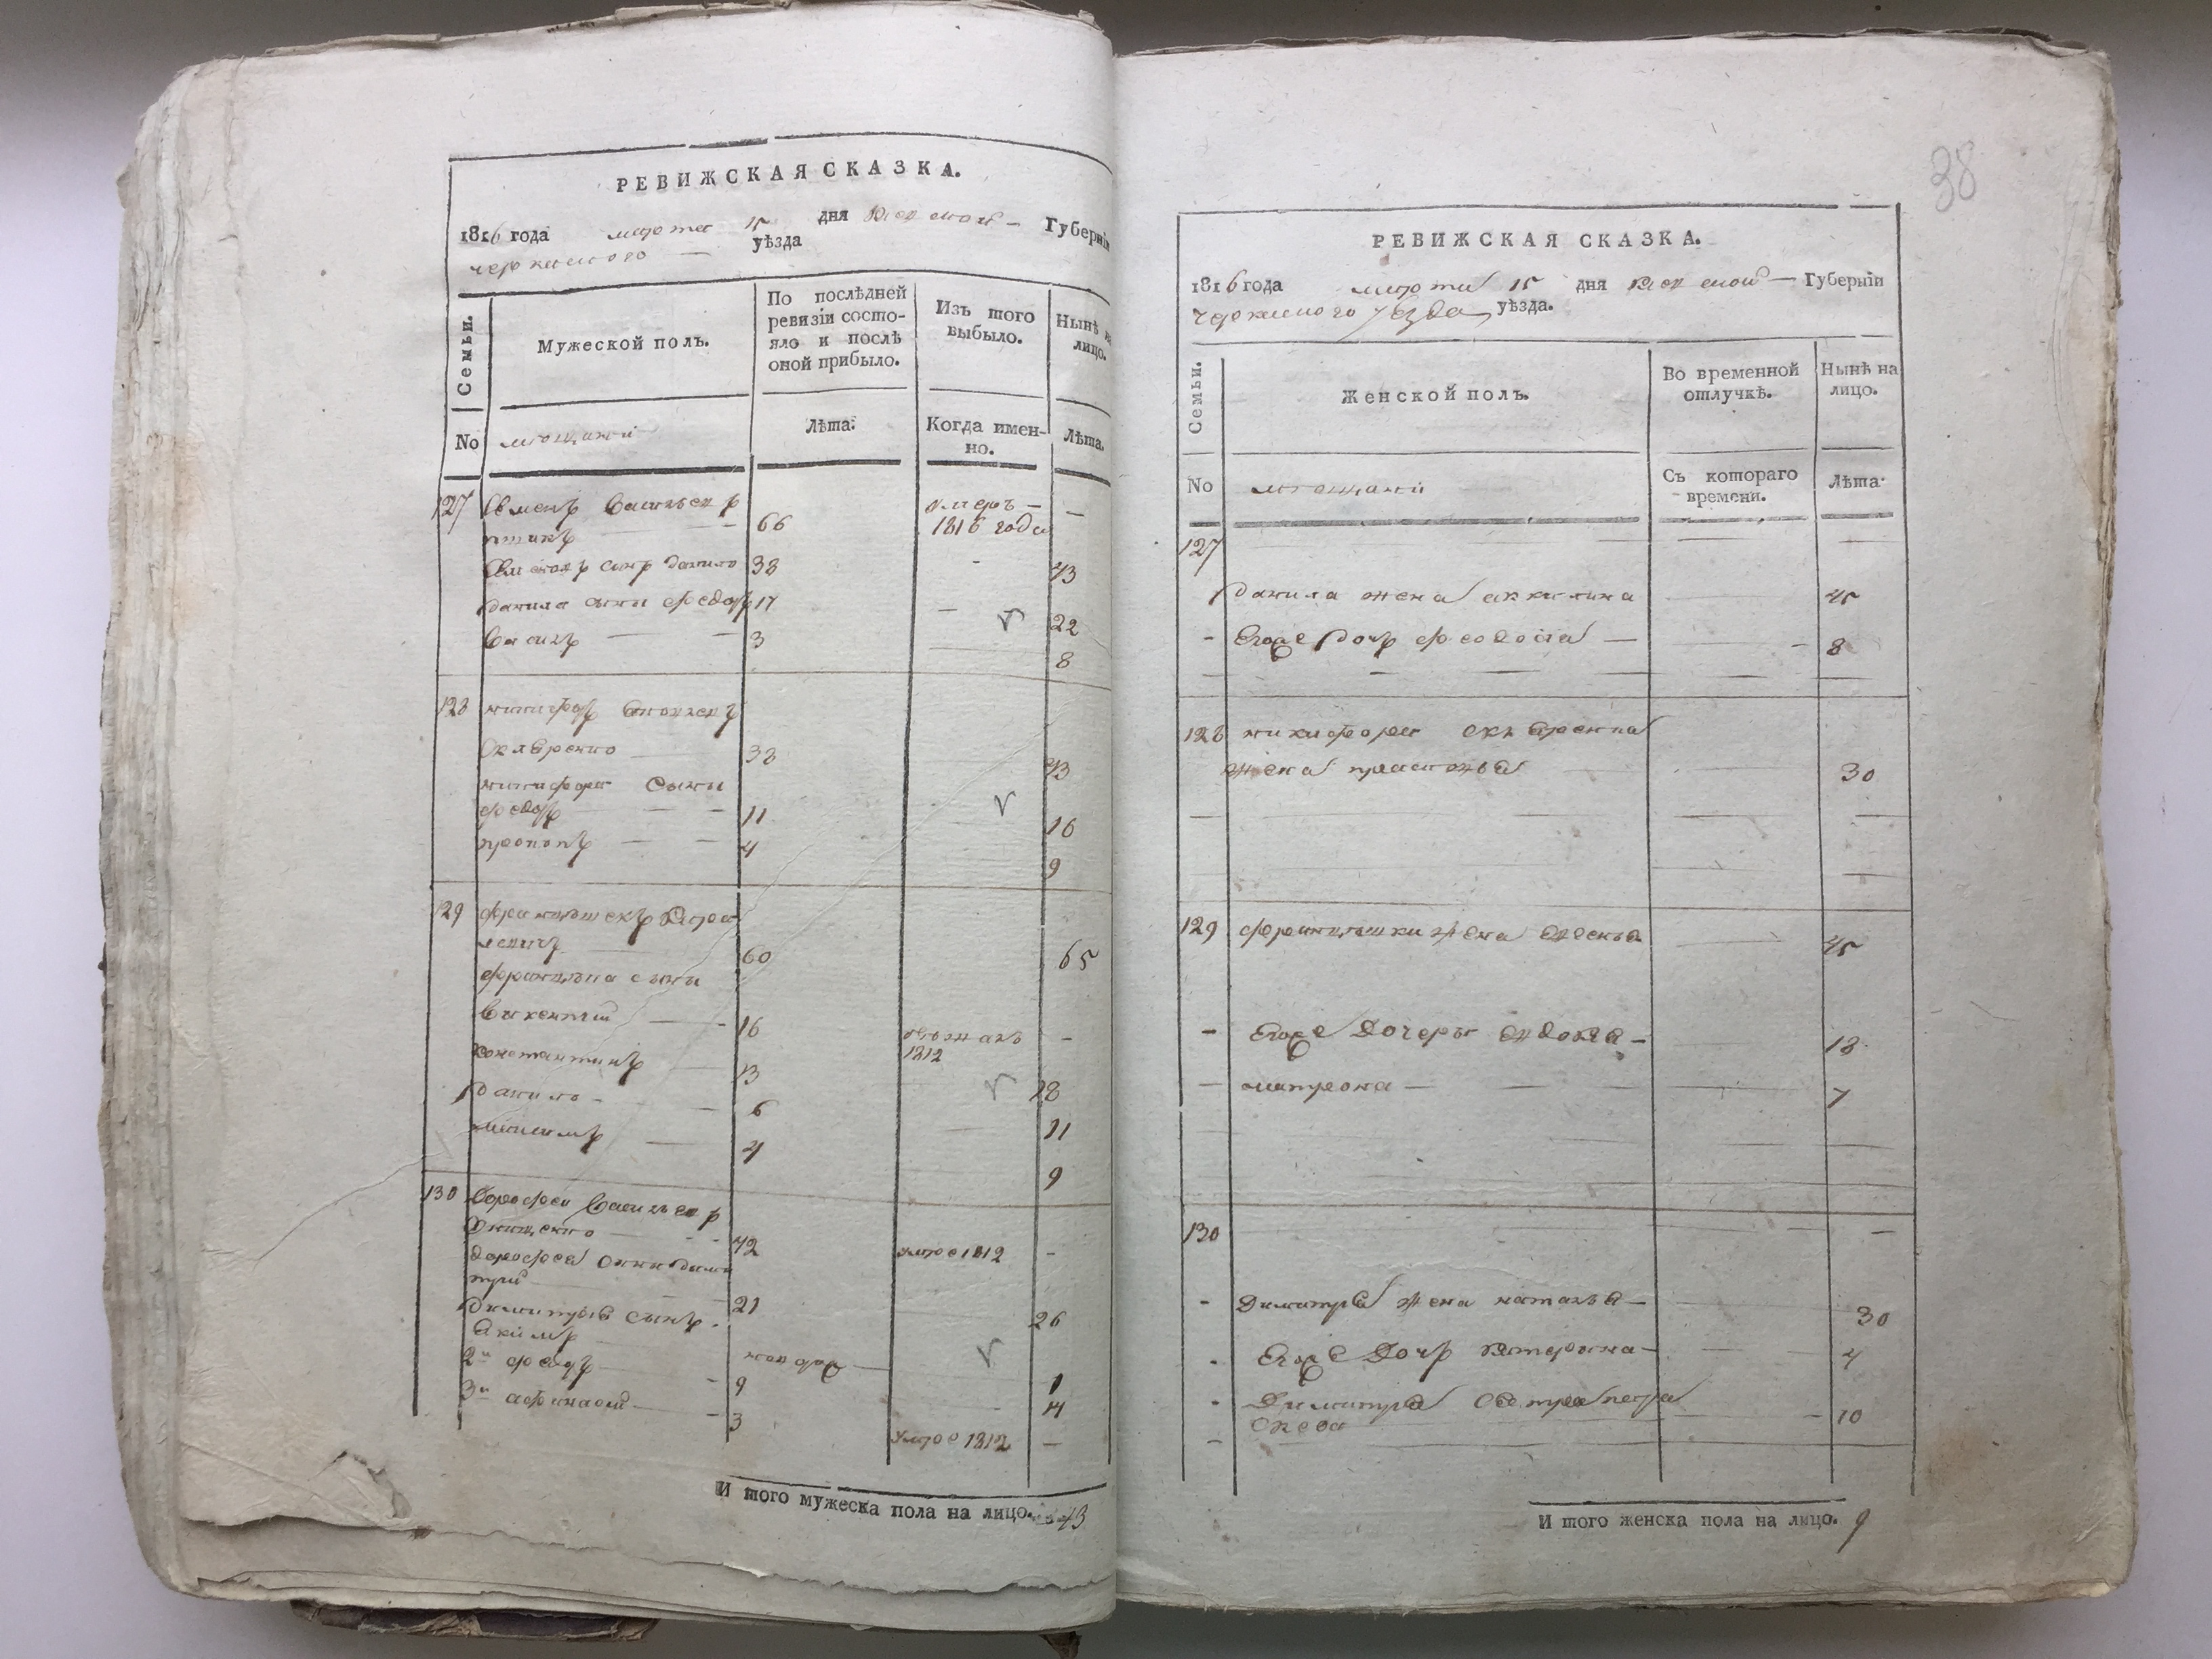 РЕВИЖСКАЯ СКАЗКА.
1816 года марта 15 дня Киевской Губерніи
черкаского уѣзда
Семьи.
Мужеской полъ.
По послѣдней ревизіи состояло и послѣ оной прибыло.
Изъ того выбыло.
Нынѣ на лицо.
No
мещане
Лѣта.
Когда именно.
Лѣта.
127 Семенъ Васильевъ 66 умеръ 1816 года —
Семенова сынъ Данило 38 - 43
Данила сыны Федоръ 17 — 22
Василь — — 3 8
128 никифоръ
Скляренко 38 43
никифора сыны
федоръ — — 11 16
прокопъ — — 4 9
129 францышекъ
60 65
сыны
Викентий — 16 1812 -
Константинъ — 13 18
Данило - — 6 11
максимъ — 4 9
130 Дорофей Васильевъ
Онищенко 42 умре 1812 -
Дорофея сыны Дими
трий 21 26
Димитрия сынъ
Акимъ 1
2й федоръ 9 14
3й афанасий 3 умре 1812 —
И того мужеска пола на лицо. 13
38
РЕВИЖСКАЯ СКАЗКА.
1816 года марта 15 дня Киевской — Губерніи
черкаского уезда уѣзда.
Семьи.
Женской полъ.
Во временной отлучкѣ.
Нынѣ на лицо.
No
мещане
Съ котораго времени.
Лѣта.
127
Данила жена акилина 45
- Егоже дочь феодосия — 8
128 никифора скляренка
жена 30
129 францышка жена 45
- Егоже Дочеры Явдокия — 18
— матрона — 7
130
- Димитрия жена наталья — 30
- Егоже Дочь катерина — 4
- Димитрия сестра
10
И того женска пола на лицо. 9